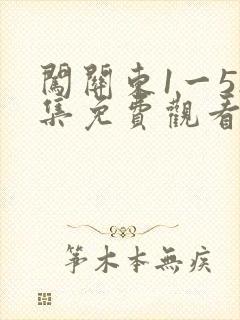 闖關東1一5
集免費觀看
筝木本無疾